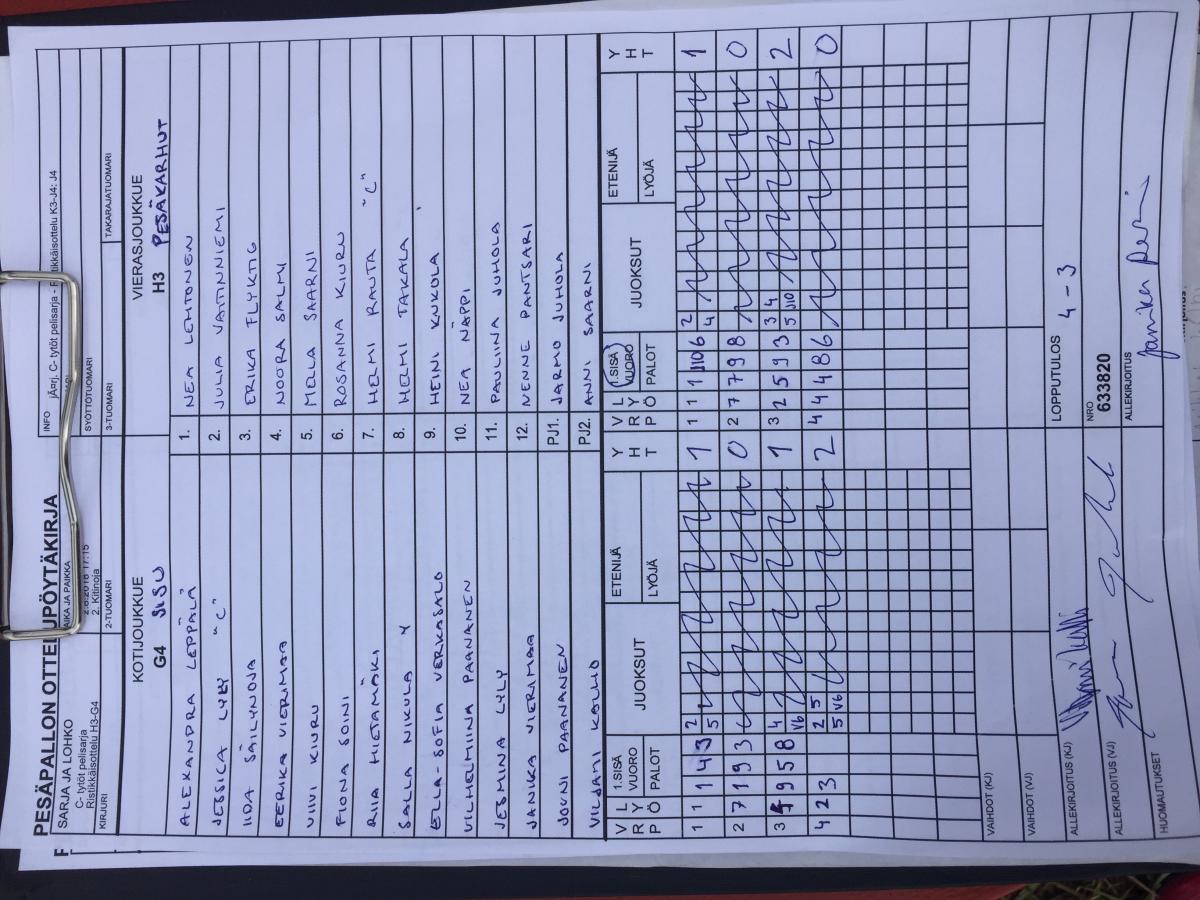 PESÄPALLON OTTELUPÖYTÄKIRJA
SARJA JA LOHKO
C- tytöt pelisarja
Ristikkäisottelu H3-G4
AIKA JA PAIKKA
2.8.2018 17:15
2. Kitinoja
INFO
C- tytöt pelisarja -
K3-J4: J4
KIRJURI
2-TUOMARI
SYÖTTÖTUOMARI
3-TUOMARI
TAKARAJATUOMARI
KOTIJOUKKUE
G4 SISU
VIERASJOUKKUE
H3 PESÄKARHUT
ALEKANDRA LEPPÄLÄ 1. NEA LEHTONEN
JESSICA LYLY "C" 2. JULIA VATINNIEMI
IIDA SÄILYNOJA 3. ERIKA FLYKTIG
EERIKA VIERIMAA 4. NOORA SALMI
VIIVI KIURU 5. MELLA SAARNI
FIONA SOINI 6. ROSANNA KIURU
RIIA HIETAMÄKI 7. HELMI RAUTA "C"
SALLA NIKULA 8. HELMI TAKALA
ELLA-SOFIA VERKASALO 9. HEINI KUKOLA
VILHELMIINA PAANANEN 10. NEA NÄPPI
JESMIN LYLY 11. PAULIINA JUHOLA
JANIKA VIERIMAA 12. NENNE PANTSARI
JOUNI PAANANEN PJ1. JARMO JUHOLA
VILJAMI KALLIO PJ2. ANNI SAARNI
VRP LYÖ 1.SISÄ VUORO PALOT JUOKSUT ETENIJÄ LYÖJÄ YHT VRP LYÖ 1.SISÄ VUORO PALOT JUOKSUT ETENIJÄ LYÖJÄ YHT
1 1 1 4 3 2 5 1 1 1 1 J10 6 2 4 1
2 7 1 9 3 0 2 7 7 9 8 0
3 9 5 8 4 V6 1 3 2 5 9 3 3 4 5 J10 2
4 2 3 2 5 5 V6 2 4 4 4 8 6 0
VAIHDOT (KJ)
VAIHDOT (VJ)
LOPPUTULOS 4 - 3
ALLEKIRJOITUS (KJ)
NRO
633820
ALLEKIRJOITUS (VJ)
ALLEKIRJOITUS
HUOMAUTUKSET